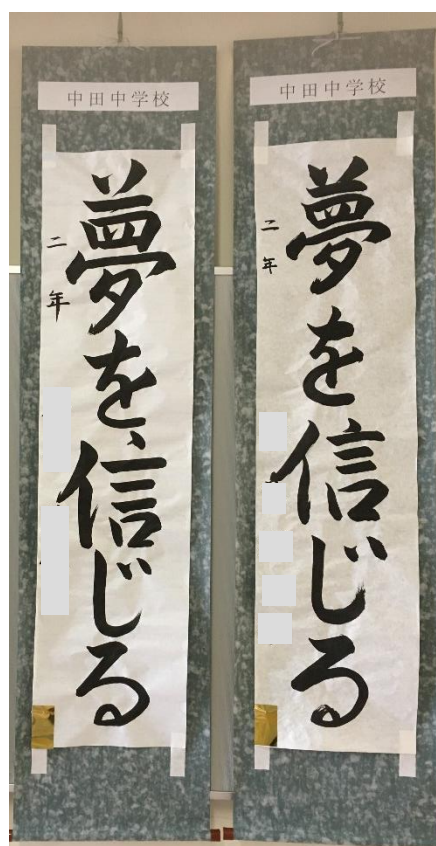 中田中学校
夢を信じる
二年
中田中学校
夢を信じる
二年